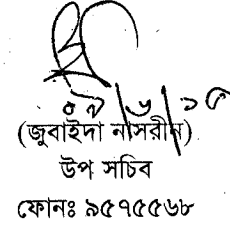 ০৯/৬/১৫
(জুবাইদা নাসরীন)
উপ সচিব
ফোনঃ ৯৫৭৫৫৬৮